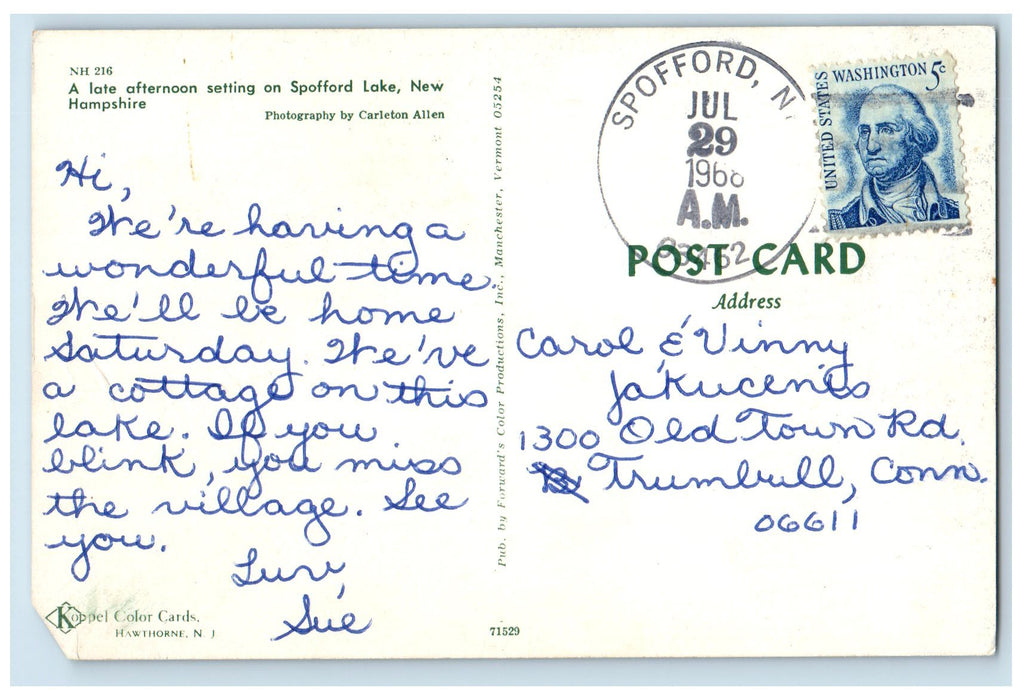 NH 216
A late afternoon setting on Spofford Lake, New
Hampshire
Photography by Carleton Allen
Hi,
We're having a
wonderful time.
We'll be home
Saturday. We've
a cottage on this
lake. If you
blink, you miss
the village. See
you.
Luv,
Sue
Koppel Color Cards.
HAWTHORNE, N. J
Pub. by Forward's Color Productions, Inc., Manchester, Vermont 05254
71529
SPOFFORD, N
JUL
29
1968
A.M.
03462
UNITED STATES
WASHINGTON 5c
POST CARD
Address
Carol & Vinny
1300 Old Town Rd.
Trumbull, Conn.
06611